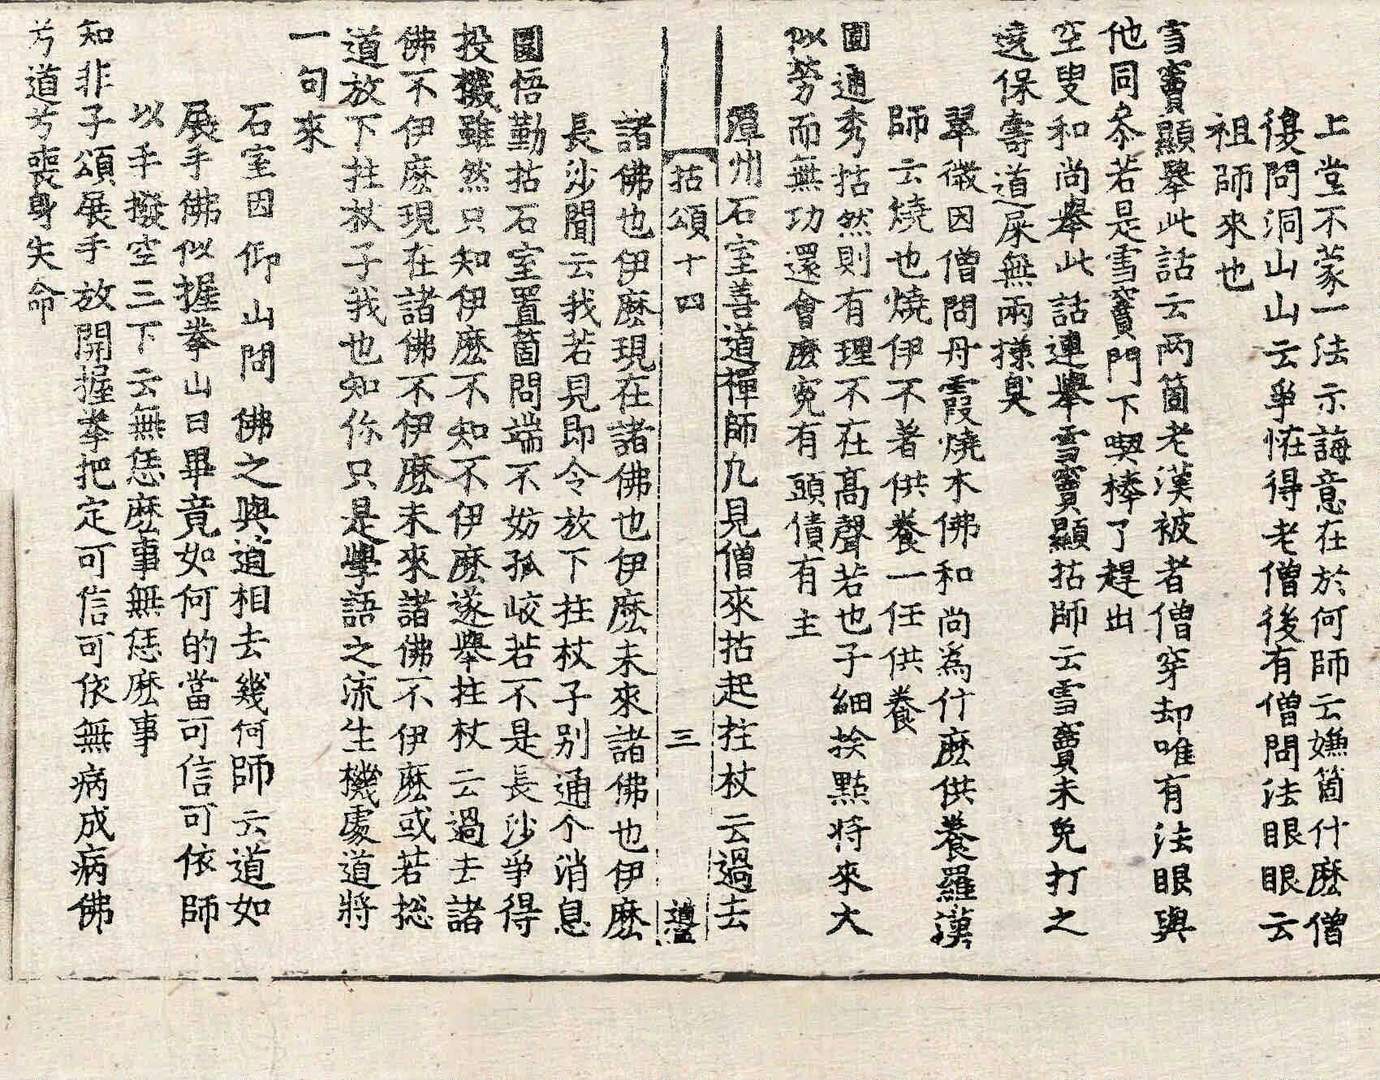 上堂不蒙一法示誨意在於何師云嫌箇什麽僧
復問洞山山云爭恠得老僧後有僧問法眼眼云
祖師來也
雪竇顯擧此話云兩箇老漢被者僧穿却唯有法眼與
他同叅若是雪竇門下喫棒了趕出
空叟和尚擧此話連擧雪竇顯拈師云雪竇未免打之
遶保壽道屎無兩㨾臭
翠微因僧問丹霞燒木佛和尚爲什麽供養羅漢
師云燒也燒伊不著供養一任供養
圓通秀拈然則有理不在高聲若也子細挨點將來大
似勞而無功還會麽寃有頭債有主
潭州石室善道禪師凡見僧來拈起拄杖云過去
拈頌十四 三 遵
諸佛也伊麽現在諸佛也伊麽未來諸佛也伊麽
長沙聞云我若見即令放下拄杖子别通个消息
圓悟勤拈石室置箇問端不妨孤峻若不是長沙爭得
投機雖然只知伊麽不知不伊麽遂擧拄杖云過去諸
佛不伊麽現在諸佛不伊麽未來諸佛不伊麽或若揔
道放下拄杖子我也知你只是學語之流生機處道將
一句來
石室因仰山問佛之與道相去幾何師云道如
展手佛似握拳山曰畢竟如何的當可信可依師
以手撥空三下云無恁麽事無恁麽事
知非子頌展手放開握拳把定可信可依無病成病佛
兮道兮喪身失命